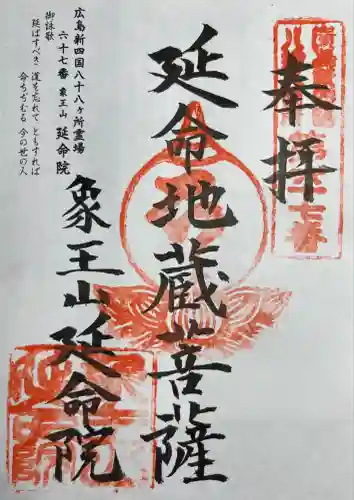 奉拝
延命地蔵菩薩
象王山延命院
広島新四国八十八ヶ所霊場
六十七番 象王山 延命院
御詠歌
延ばすべき 道を忘れて ともすれば
命ちぢむる 今の世の人